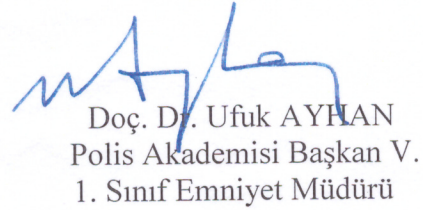 Doç. Dr. Ufuk AYHAN
Polis Akademisi Başkan V.
1. Sınıf Emniyet Müdürü